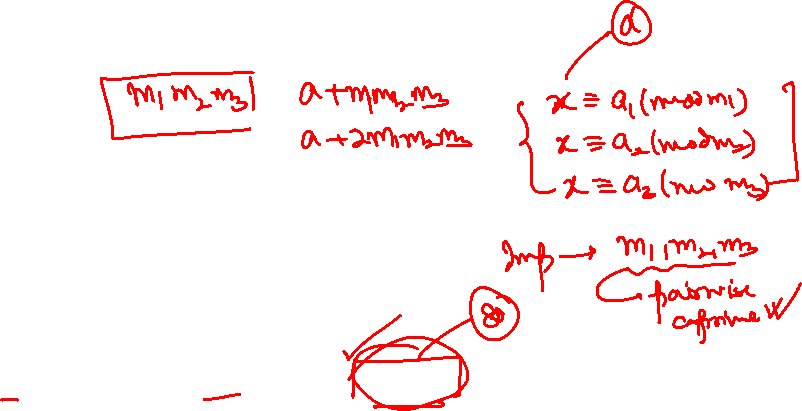 a
m₁ m₂ m₃
a + m₁m₂m₃
a + 2m₁m₂m₃
x ≡ a₁ (mod m₁)
x ≡ a₂ (mod m₂)
x ≡ a₂ (mod m₃)
Imp → m₁, m₂, m₃
pairwise
coprime